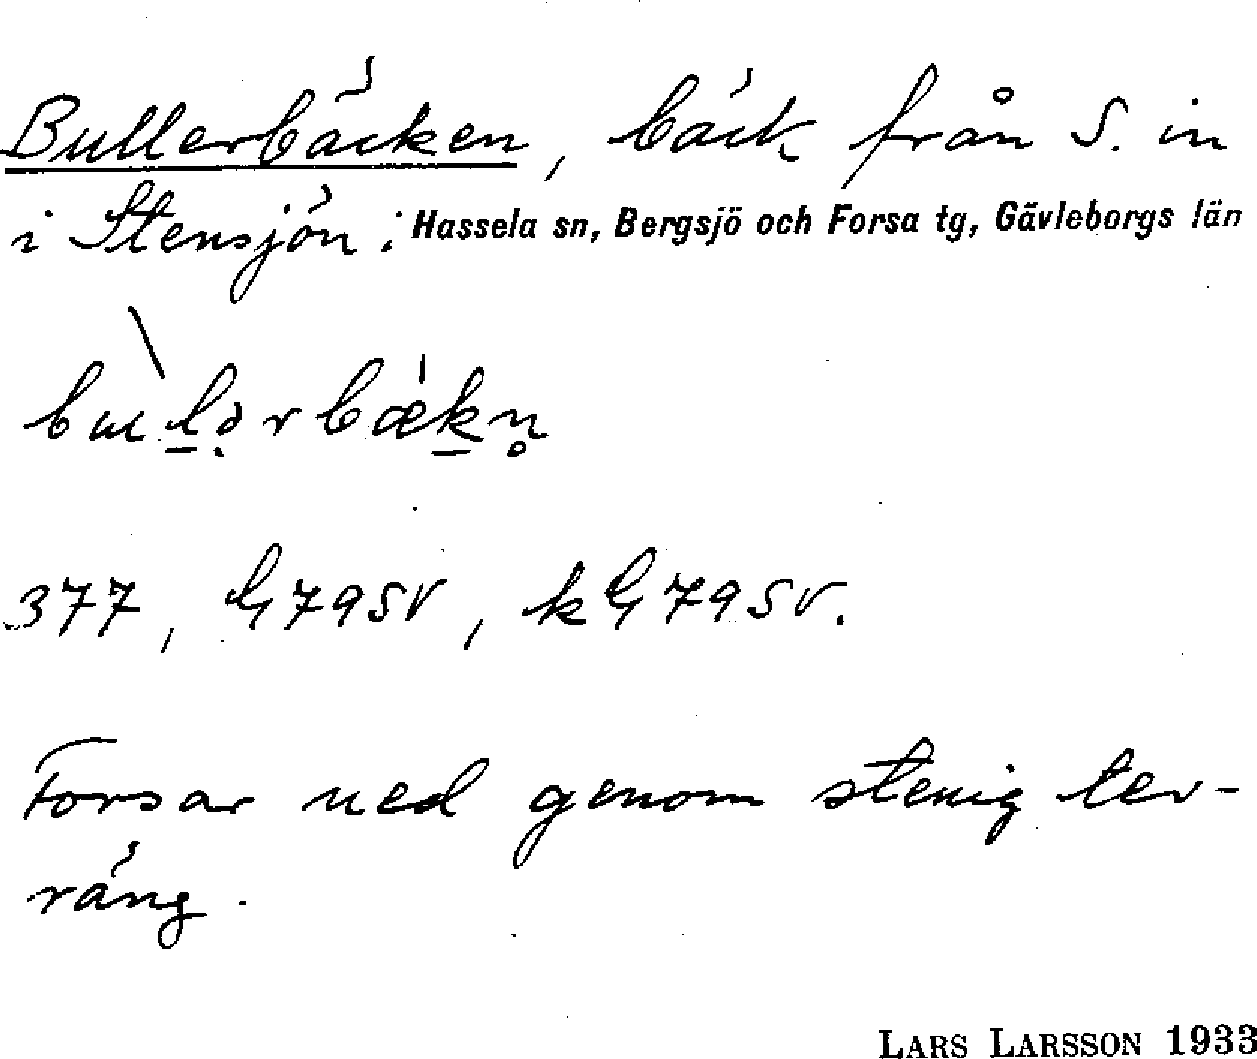 Bullerbäcken, bäck från S. in
i Stensjön; Hassela sn, Bergsjö och Forsa tg, Gävleborgs län
bu̠lərbæ̍k̠n̥
377, G79SV, kG79SV.
Forsar ned genom stenig ter-
räng.
LARS LARSSON 1933